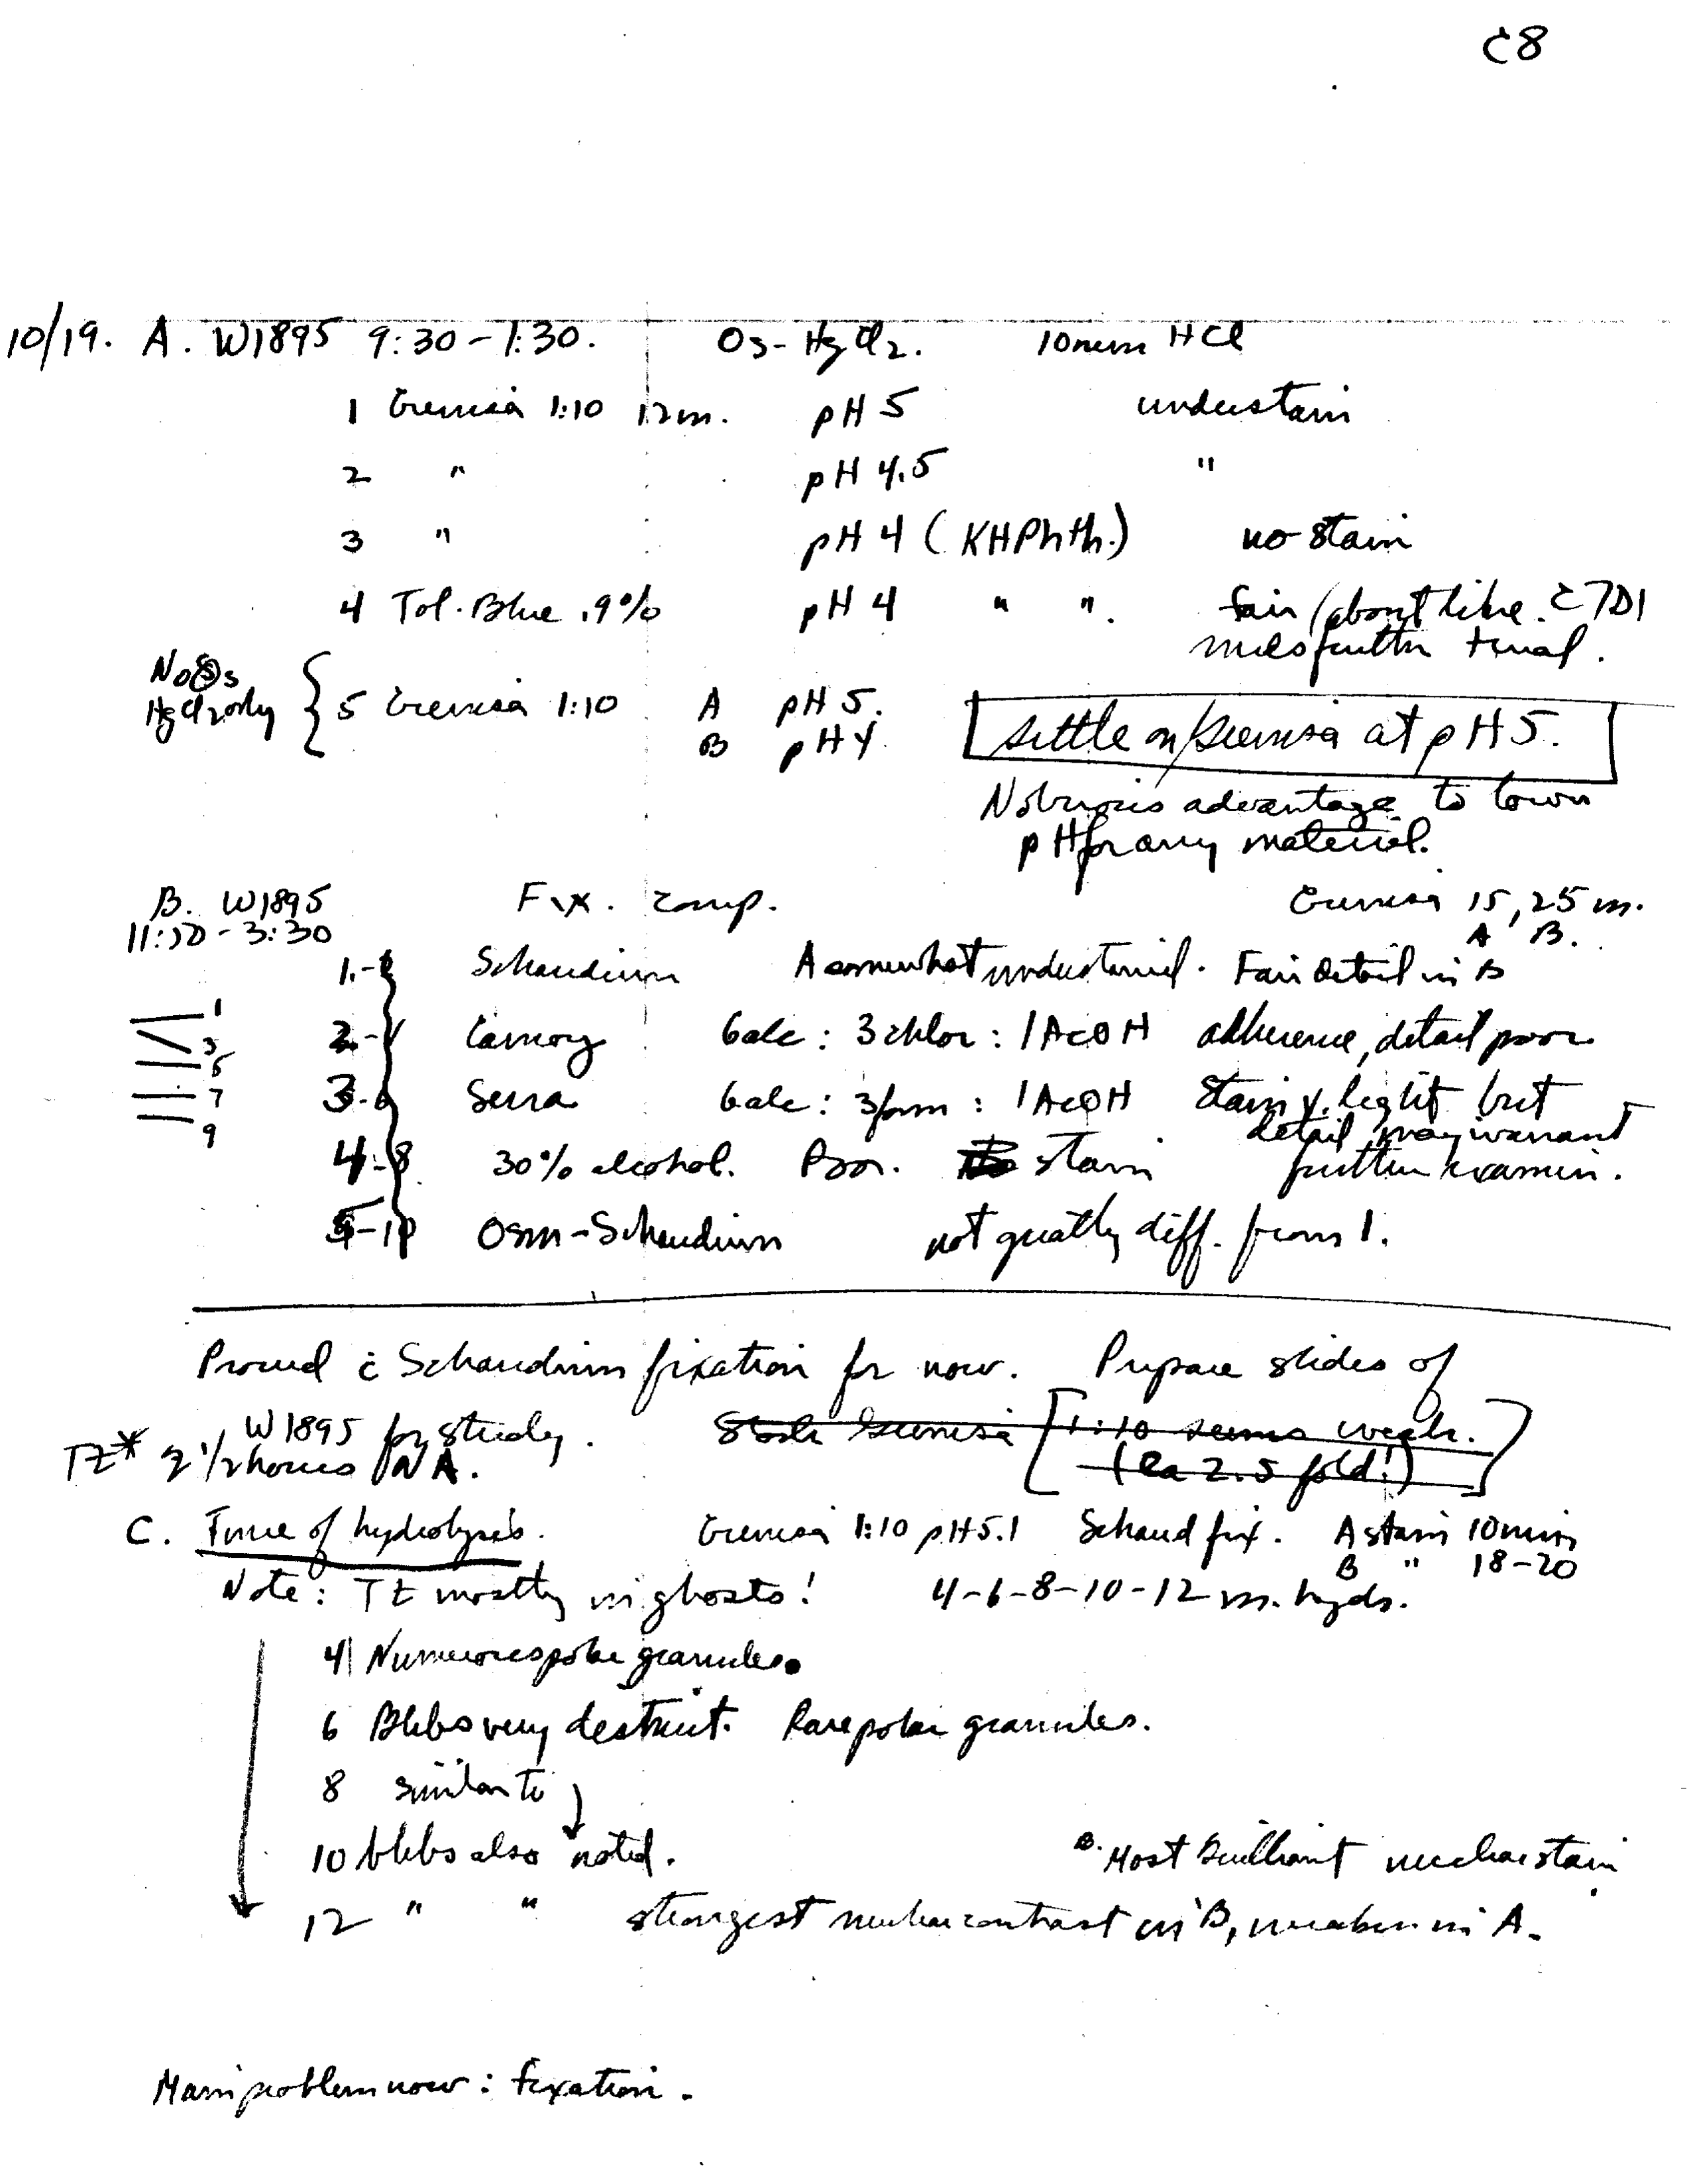 C8
10/19. A. W1895 9:30-1:30. Os-HgCl2. 10min HCl
1 Giemsa 1:10 12m. pH 5 understain
2 " pH 4.5 "
3 " pH 4 (KHPhth.) no stain
4 Tol. Blue .9% pH 4 " ". fair (about like C7D1
needs further trial.
No Os
HgCl2 only { 5 Giemsa 1:10 A pH 5.
B pH 4.
settle on Giemsa at pH 5.
No obvious advantage to lower
pH for any material.
B. W1895 Fix. comp. Giemsa 15, 25 m.
11:30-3:30 A B.
1.-2 Schaudinn A somewhat understained. Fair detail in B
2-4 Carnoy 6alc : 3chlor : 1AcOH adherence, detail poor
3-6 Serra 6alc : 3form : 1AcOH Stain v. light but
detail may warrant
further examin.
4-8 30% alcohol. Poor. stain
5-10 Osm-Schaudinn not greatly diff. from 1.
1
3
5
7
9
Proceed c̄ Schaudinn fixation for now. Prepare slides of
W1895 for study. Stock Giemsa [1:10 seems weak.
(ca 2.5 fold!)]
TZ* 2 1/2 hours on A.
C. Time of hydrolysis. Giemsa 1:10 pH5.1 Schaud fix. A stain 10min
B " 18-20
Note: TZ mostly in ghosts! 4-6-8-10-12 m. hyds.
4 Numerous polar granules.
6 Blebs very distinct. Rare polar granules.
8 similar to
10 blebs also noted. B. Most brilliant nuclear stain
12 " " strongest nuclear contrast in B, weaker in A.
Main problem now: fixation.